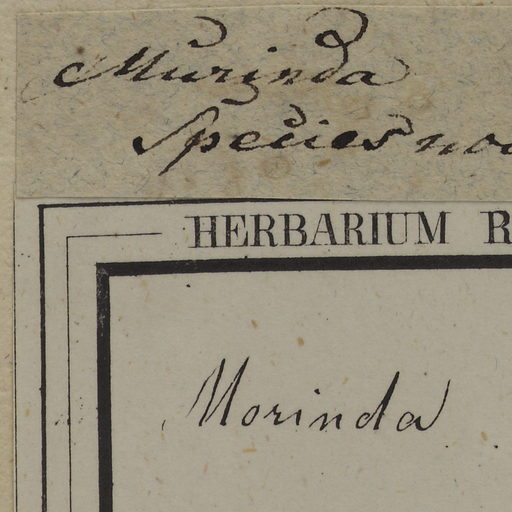 Murinda
Species
HERBARIUM
Morinda